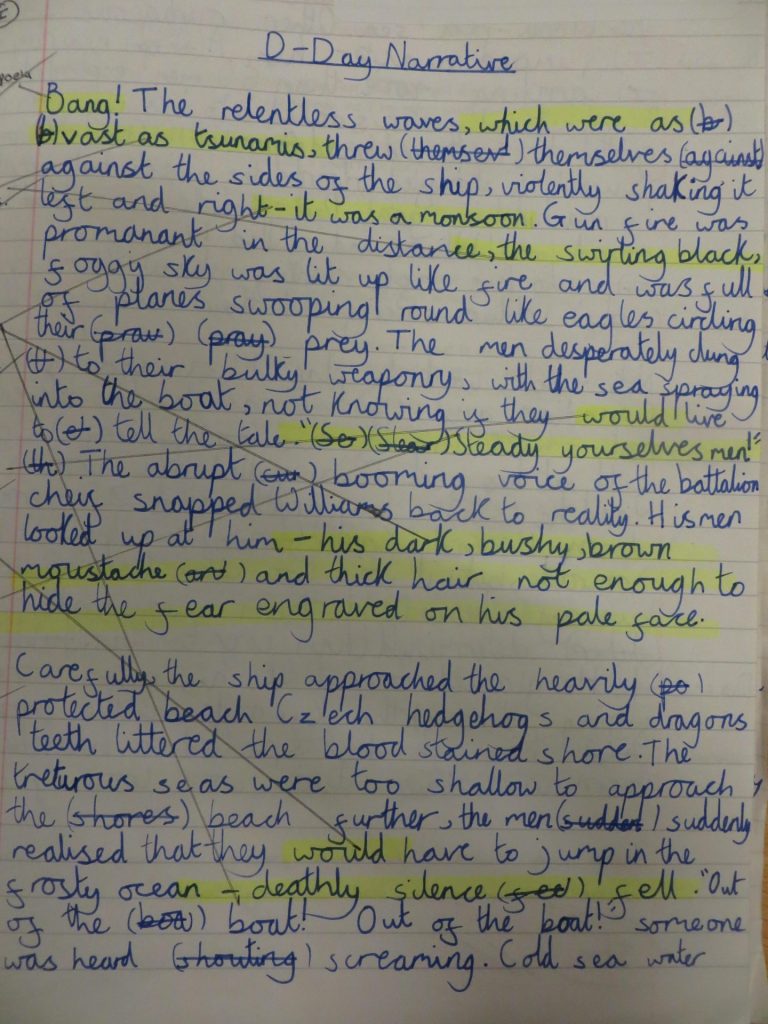 E
D-Day Narrative
Bang! The relentless waves, which were as (b)
(b)vast as tsunamis, threw (themserd) themselves (against)
against the sides of the ship, violently shaking it
left and right - it was a monsoon. Gun fire was
promanant in the distance, the swirling black,
foggy sky was lit up like fire and was full
of planes swooping round like eagles circling
their (prau) (pray) prey. The men desperately clung
(t) to their bulky weaponry, with the sea spraying
into the boat, not knowing if they would live
to (et) tell the tale. "(So) (Stear) Steady yourselves men!"
(th) The abrupt (cur) booming voice of the battalion
cheif snapped Williams back to reality. His men
looked up at him - his dark, bushy, brown
moustache (and) and thick hair not enough to
hide the fear engraved on his pale face.
Carefully, the ship approached the heavily (po)
protected beach Czech hedgehogs and dragons
teeth littered the blood stained shore. The
treturous seas were too shallow to approach
the (shores) beach further, the men (sudden) suddenly
realised that they would have to jump in the
frosty ocean - deathly silence (fed) fell. "Out
of the (boa) boat! Out of the boat!" someone
was heard (shouting) screaming. Cold sea water